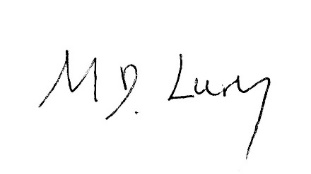 M D. Lury